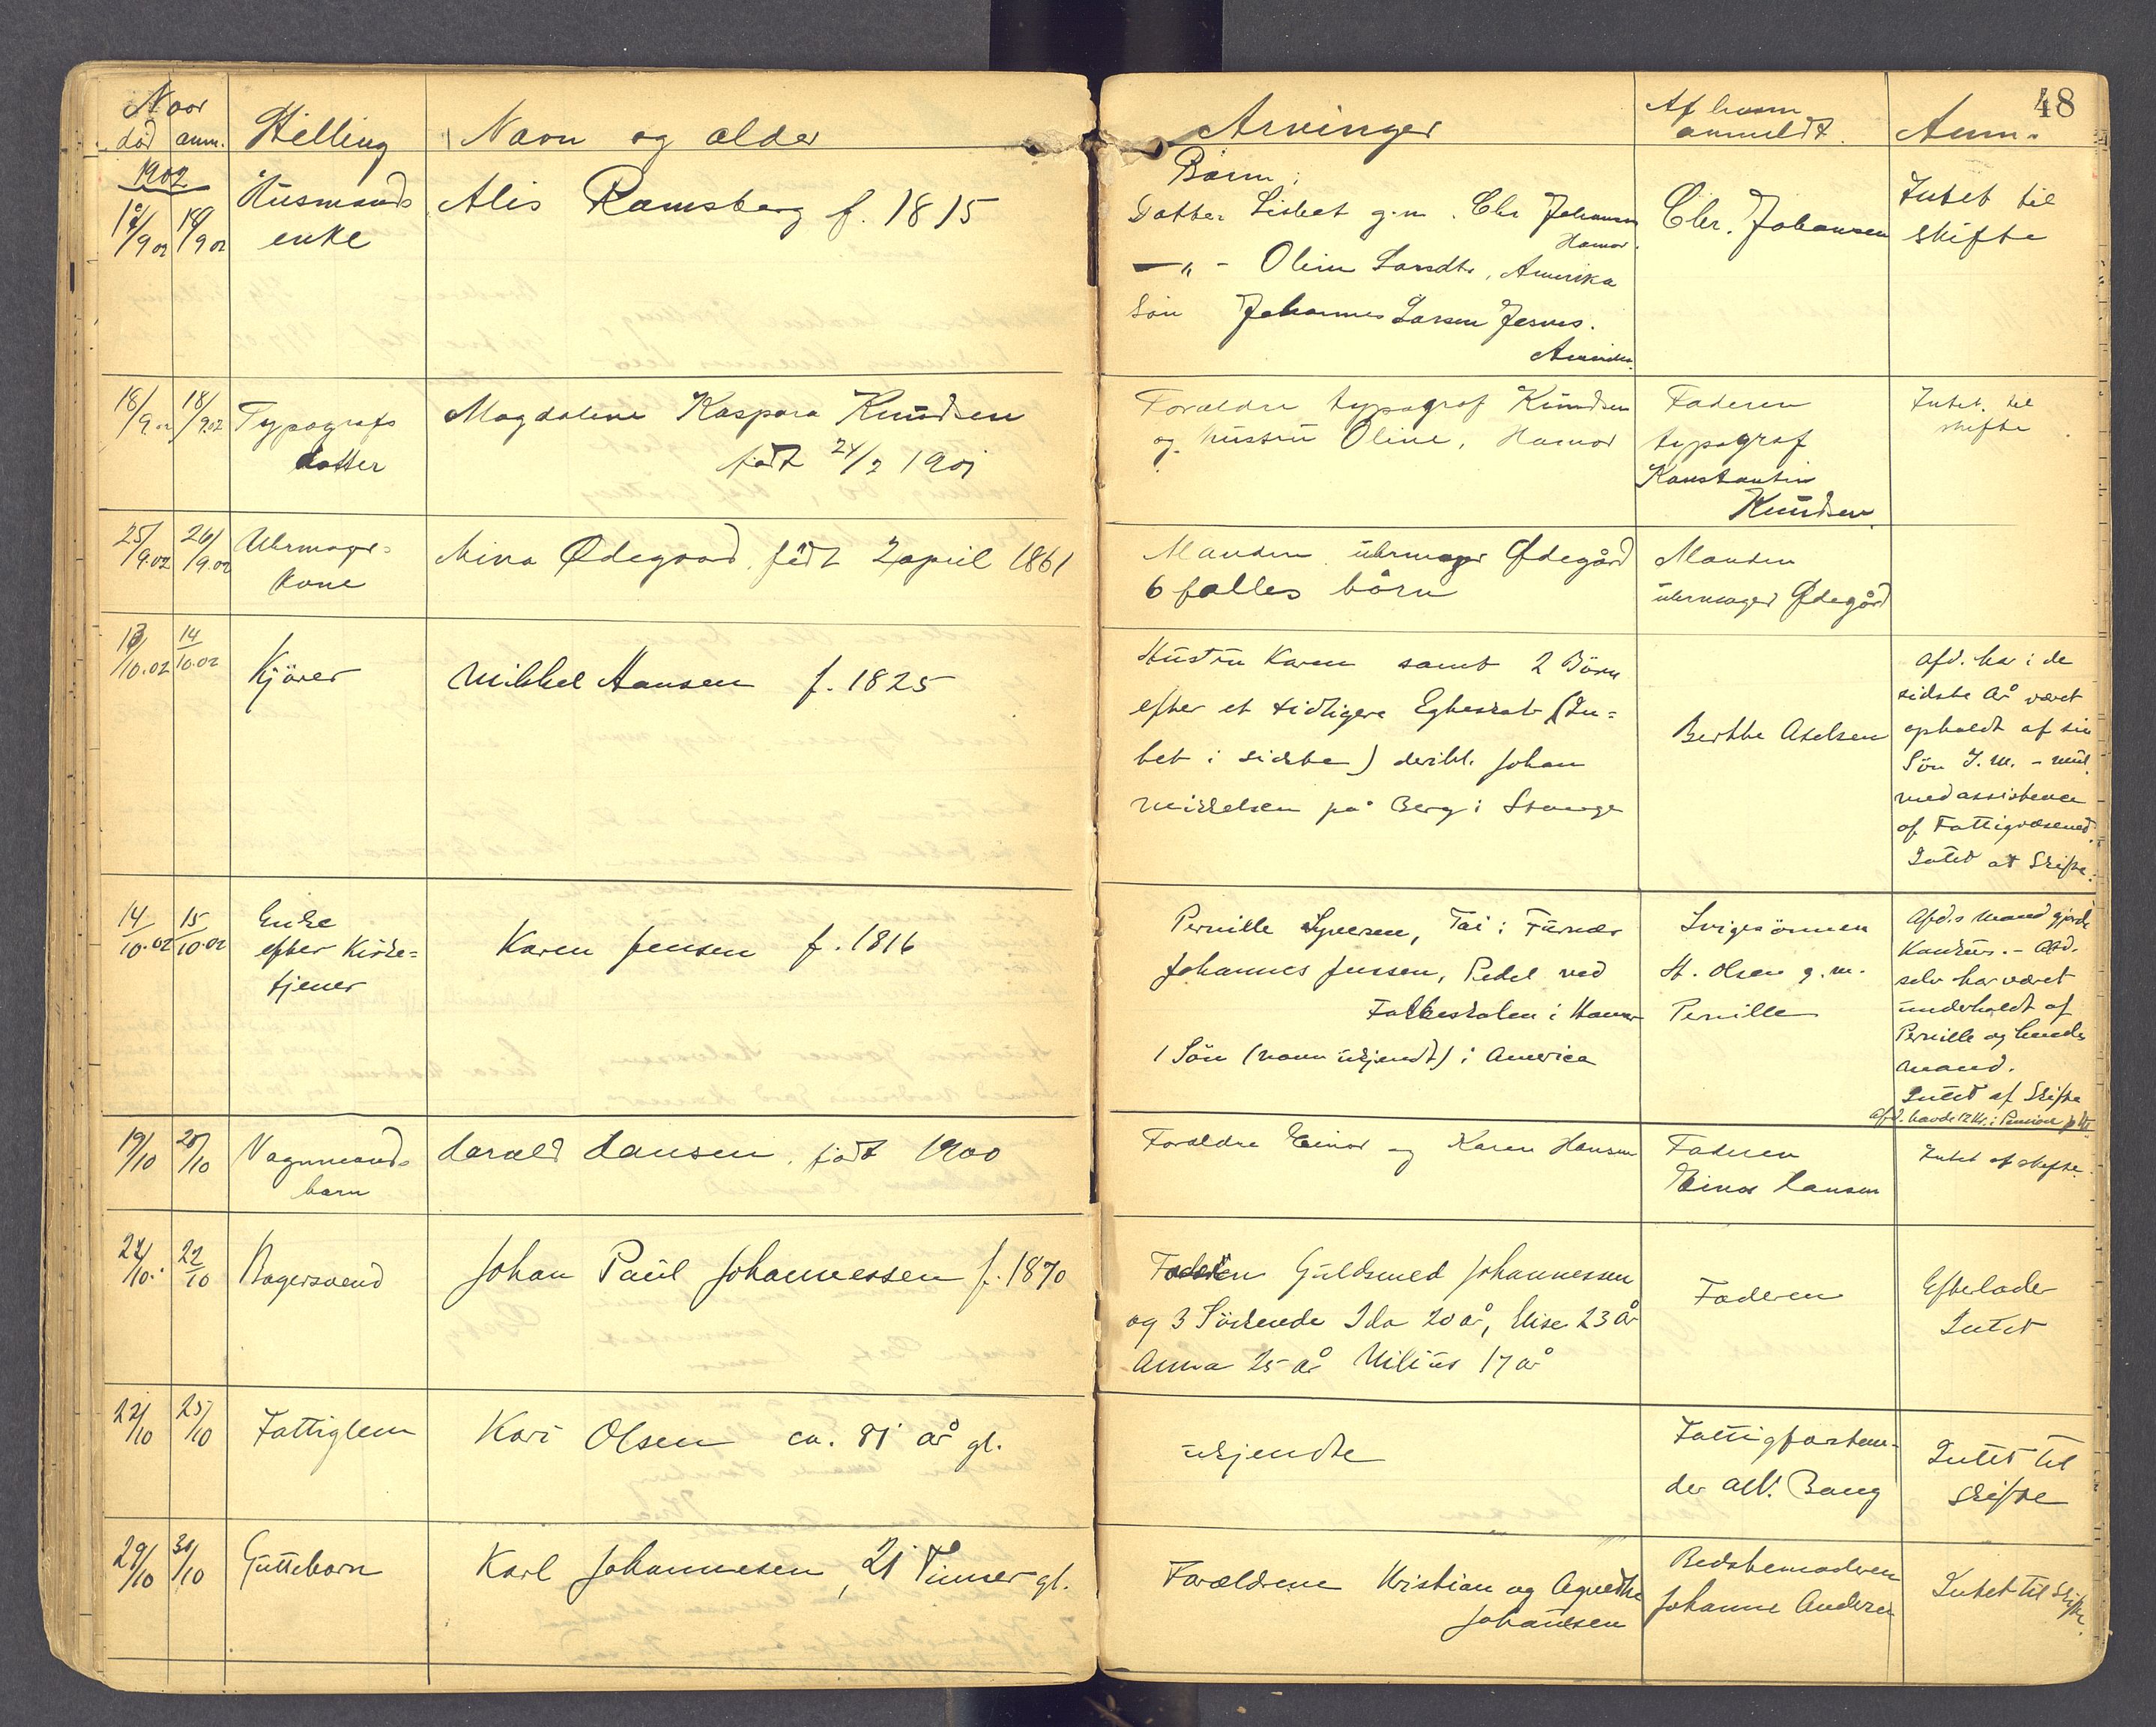 48
Naar
død anm. Stilling Navn og alder Arvinger Af hvem anmeldt Anm.
1902
17/9 02 18/9 02
Husmands
enke
Alis Ramsberg f. 1815
Børn:
Datter Lisbet g.m. Chr Johansen
Hamar.
—„- Oline Larsdtr, Amerika
Søn Johannes Larsen Jesnes.
Amerika
Chr. Johansen
Intet til
skifte
18/9.02 18/9.02
Typografs
datter
Magdalene Kaspara Knudsen
født 24/2 1901
Forældre typograf Knudsen
og hustru Oline, Hamar
Faderen
typograf
Konstantin
Knudsen
Intet til
skifte
25/9.02 26/9.02
Uhrmager-
kone
Mina Ødegaard født 2 april 1861
Manden uhrmager Ødegård
6 fælles børn
Manden
uhrmager Ødegård
13/10.02 14/10.02
Kjører
Mikkel Hansen f. 1825
Hustru Karen samt 2 Börn
efter et tidligere Egteskab (In-
tet i sidste) deribl. Johan
Mikkelsen på Berg i Stange
Berthe Axelsen
Afd. har i de
sidste år været
opholdt af sin
Sön J. M. -
med assistence
af Fattigvæsenet.
Intet at Skifte.
14/10.02 15/10.02
Enke
efter Kirke-
tjener
Karen Jensen f. 1816
Pernille Syversen, Tai i Furnæs
Johannes Jenssen, Pedel ved
Folkeskolen i Hamar
1 Sön (navn ukjendt) i America
Svigesönnen
H. Olsen g. m.
Pernille
Afd.s Mand gjorde
Konkurs. - Afd.
selv har været
underholdt af
Pernille og hendes
mand.
Intet at Skifte
Afd. havde 12 Kr. i Pension
19/10 20/10
Vognmands
barn
Harald Hansen. født 1900
Forældre Einar og Karen Hansen
Faderen
Einar Hansen
Intet at skifte.
22/10. 22/10
Bagersvend
Johan Paul Johannessen f. 1870
Faderen Guldsmed Johannessen
og 3 Söskende Ida 20 år, Elise 23 år
Anna 25 år Milius 17 år
Faderen
Efterlader
Intet
22/10 25/10
Fattiglem
Kari Olsen ca. 81 år gl.
ukjendte
Fattigforstan-
der Alb. Bang
Intet til
skifte
29/10 30/10
Guttebarn
Karl Johannesen, 21 Timer gl.
Forældrene Kristian og Agnethe
Johannesen
Bedstemoderen
Johanne Andersen
Intet til Skifte.